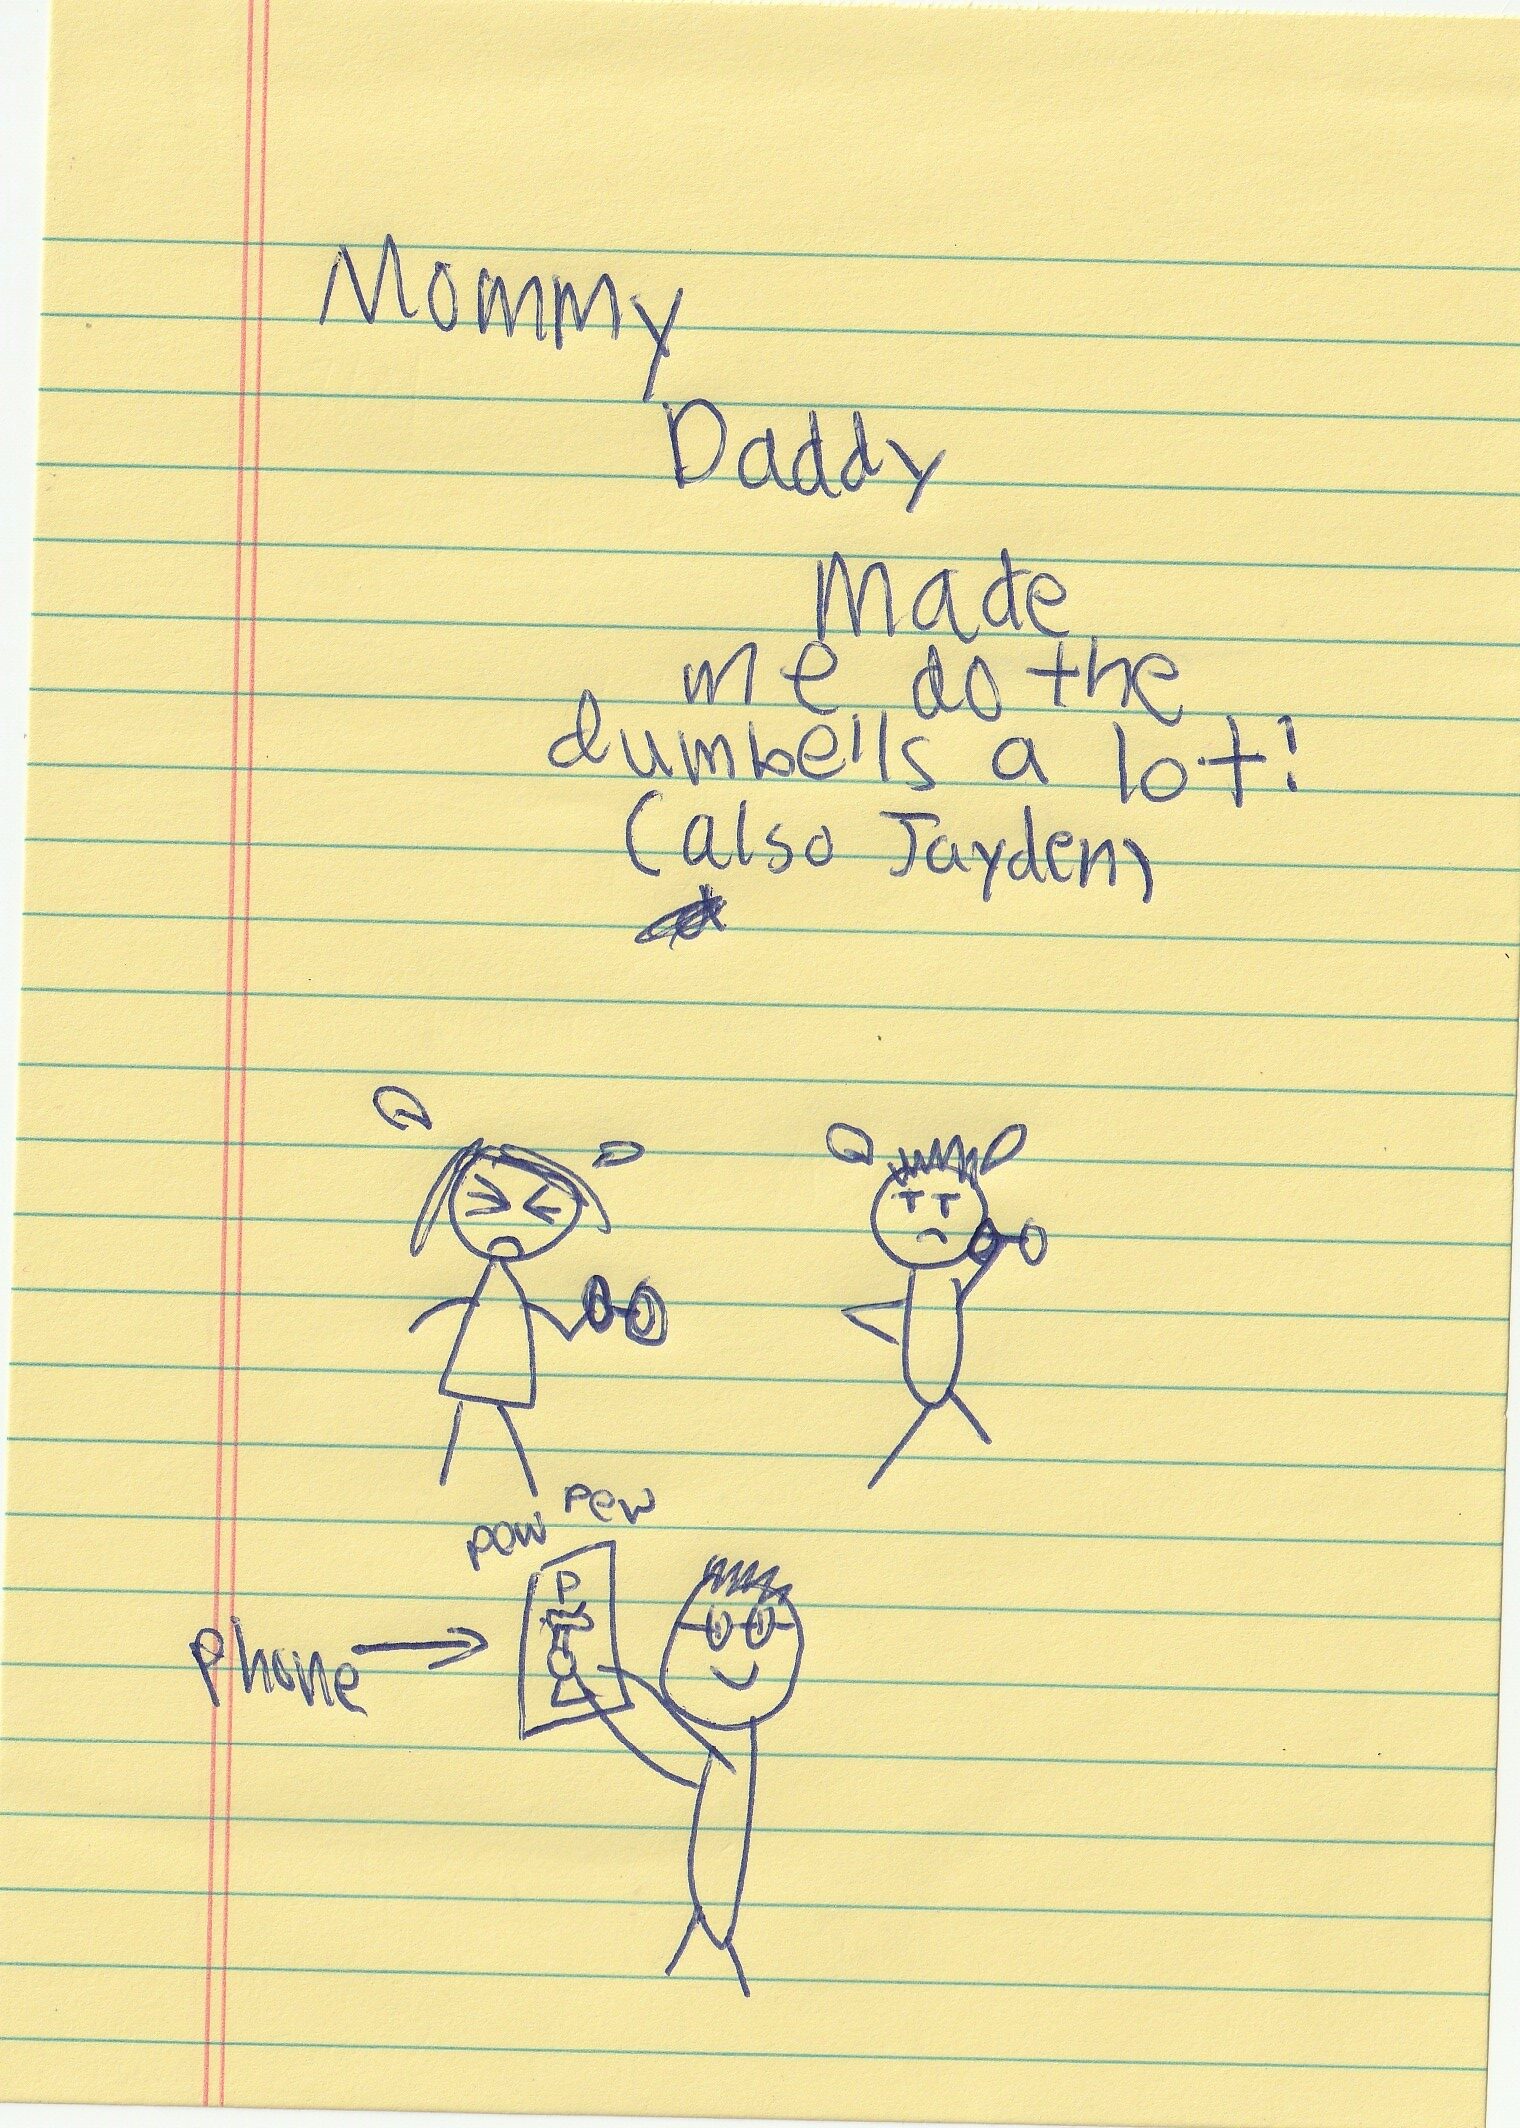 Mommy
Daddy
Made
me do the
dumbells a lot!
(also Jayden)
pow pew
phone